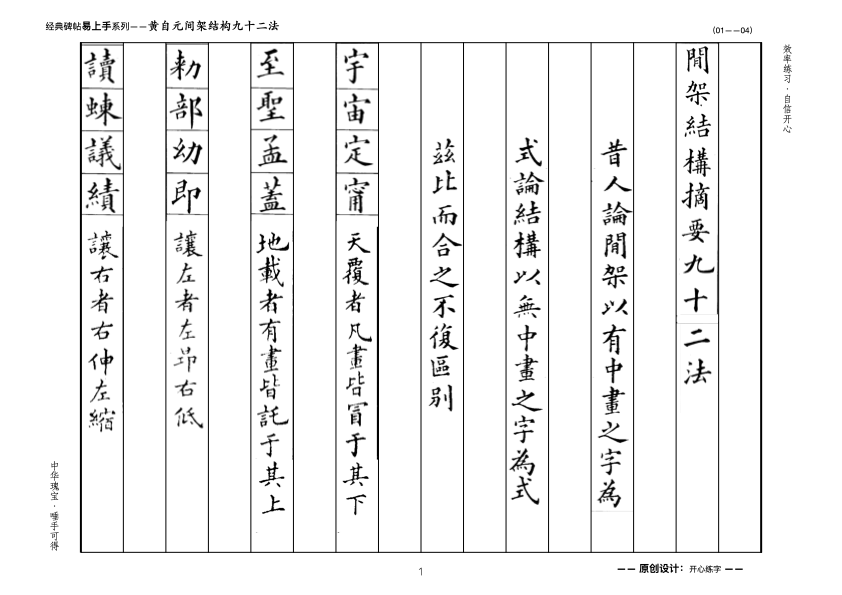 经典碑帖易上手系列——黄自元间架结构九十二法
（01——04）
效率练习，自信开心
間架結構摘要九十二法
昔人論間架以有中畫之字為
式論結構以無中畫之字為式
茲比而合之不復區别
宇宙定甯 天覆者凡畫皆冒于其下
至聖孟蓋 地載者有畫皆託于其上
勑部幼即 讓左者左昂右低
讀蝀議績 讓右者右伸左縮
中华瑰宝，唾手可得
1
—— 原创设计：开心练字 ——